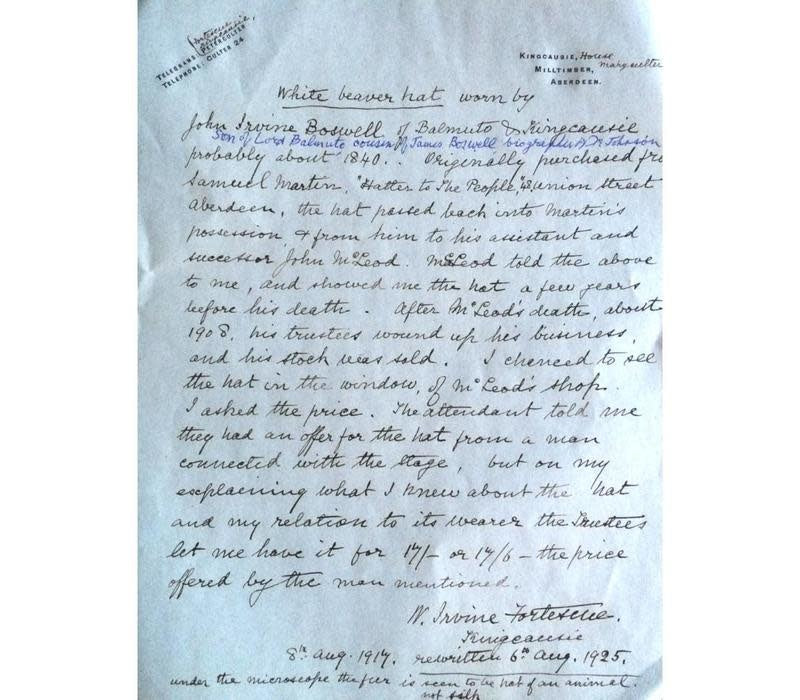 Telegrams Peterculter
Fortescue, Kingcausie,
Telephone: Culter 24
Kingcausie, House
Maryculter
Milltimber,
Aberdeen.
White beaver hat worn by
John Irvine Boswell of Balmuto & Kingcausie
Son of Lord Balmuto cousin of James Boswell biographer of Dr Johnson
probably about 1840. Originally purchased fro
Samuel Martin, "Hatter to The People," union street
aberdeen, the hat passed back into Martin's
possession & from him to his assistant and
successor John McLeod. McLeod told the above
to me, and showed me the hat a few years
before his death. After McLeod's death, about
1908, his trustees wound up his business,
and his stock was sold. I chanced to see
the hat in the window, of McLeod's shop.
I asked the price. The attendant told me
they had an offer for the hat from a man
connected with the stage, but on my
explaining what I knew about the hat
and my relation to its wearer the Trustees
let me have it for 17/- or 17/6 – the price
offered by the man mentioned.
W. Irvine Fortescue.
Kingcausie
8th aug. 1917. rewritten 6th aug. 1925.
under the microscope the fur is seen to be hat of an animal.
not silk